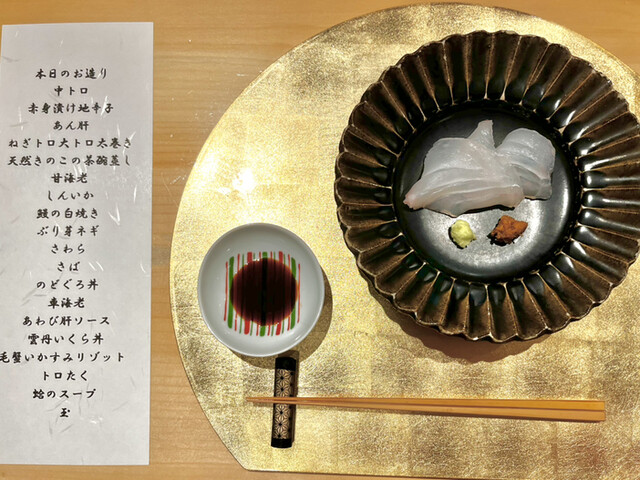 本日のお造り
中トロ
赤身漬け地辛子
あん肝
ねぎトロ大トロ太巻き
天然きのこの茶碗蒸し
甘海老
しんいか
鰻の白焼き
ぶり芽ネギ
さわら
さば
のどぐろ丼
車海老
あわび肝ソース
雲丹いくら丼
毛蟹いかすみリゾット
トロたく
蛤のスープ
玉